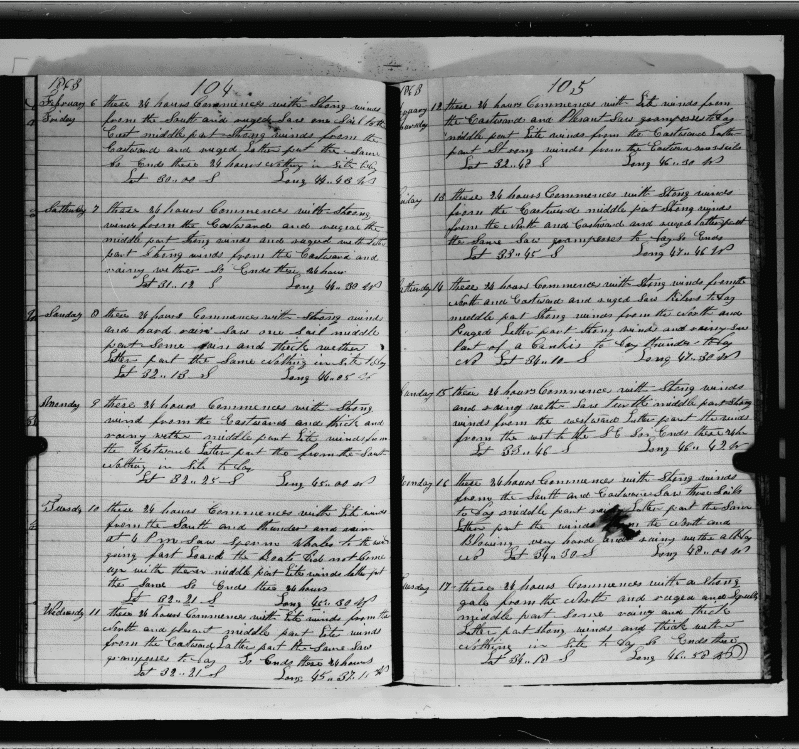 1863 104
February 6 these 24 hours Commences with Strong winds
Friday from the South and ruged Saw one Sail to the
East middle part Strong winds from the
Eastward and ruged Latter part the Same
So Ends these 24 hours Nothing in Site to Day
Lat 30.00 S Long 44.43 W
Satterday 7 these 24 hours Commences with Strong
winds from the Eastward and rugid the
middle part Strong winds and ruged with latter
part Strong winds from the Eastward and
rainy wether So Ends these 24 hour
Lat 31.12 S Long 44.30 W
Sunday 8 these 24 hours Commence with Strong winds
and hard rain Saw one Sail middle
part Some rain and thick wether
Latter part the Same Nothing in Site to Day
Lat 32.13 S Long 44.05 W
Monday 9 these 24 hours Commences with Strong
wind from the Eastward and thick and
rainy wether middle part Lite winds from
the Westward Latter part the from the South
Nothing in Site to Day
Lat 32.25 S Long 45.00 W
Tuesday 10 these 24 hours Commences with Lite winds
from the South and thunder and rain
at 4 P m Saw Sperm Whales to the wind
going fast Loard the Boats Did not Come
up with them middle part Lite winds latter part
the Same So Ends these 24 hours
Lat 32.21 S Long 45.30 W
Wednesday 11 these 24 hours Commences with Lite winds from the
North and plesent middle part Lite winds
from the Eastward Latter part the Same Saw
grampuses to Day So Ends these 24 hours
Lat 32.21 S Long 45.37.11 W
1863 105
12 these 24 hours Commences with Lite winds from
the Eastward and Plesant Saw grampusses to Day
middle part Lite winds from the Eastward Latter
part Strong winds from the Eastward
Lat 32.48 S Long 46.30 W
13 these 24 hours Commences with Strong winds
from the Eastward middle part Strong winds
from the North and Eastward and ruged latter part
the Same Saw grampusses to Day So Ends
Lat 33.45 S Long 47.46 W
14 these 24 hours Commences with Strong winds from the
North and Eastward and ruged Saw to Day
middle part Strong winds from the North and
Ruged Latter part Strong winds and rainy Saw
Part of a to Day thunder to Day
No Lat 34.10 S Long 47.30 W
15 these 24 hours Commence with Strong winds
and rainy wether Saw middle part Strong
winds from the westward Latter part the winds
from the west to the S E So Ends these 24 hours
Lat 35.46 S Long 46.42 W
16 these 24 hours Commences with Strong winds
from the South and Eastward Saw three Sails
to Day middle part Latter part the Same
Latter part the winds from the North and
Blowing very hard and raing with all Day
No Lat 34.30 S Long 48.00 W
17 these 24 hours Commences with a Strong
gale from the North and ruged and Squally
middle part Some rainy and thick
Latter part Strong winds and thick wether
Nothing in Site to Day So Ends these
Lat 34.18 S Long 46.58 W